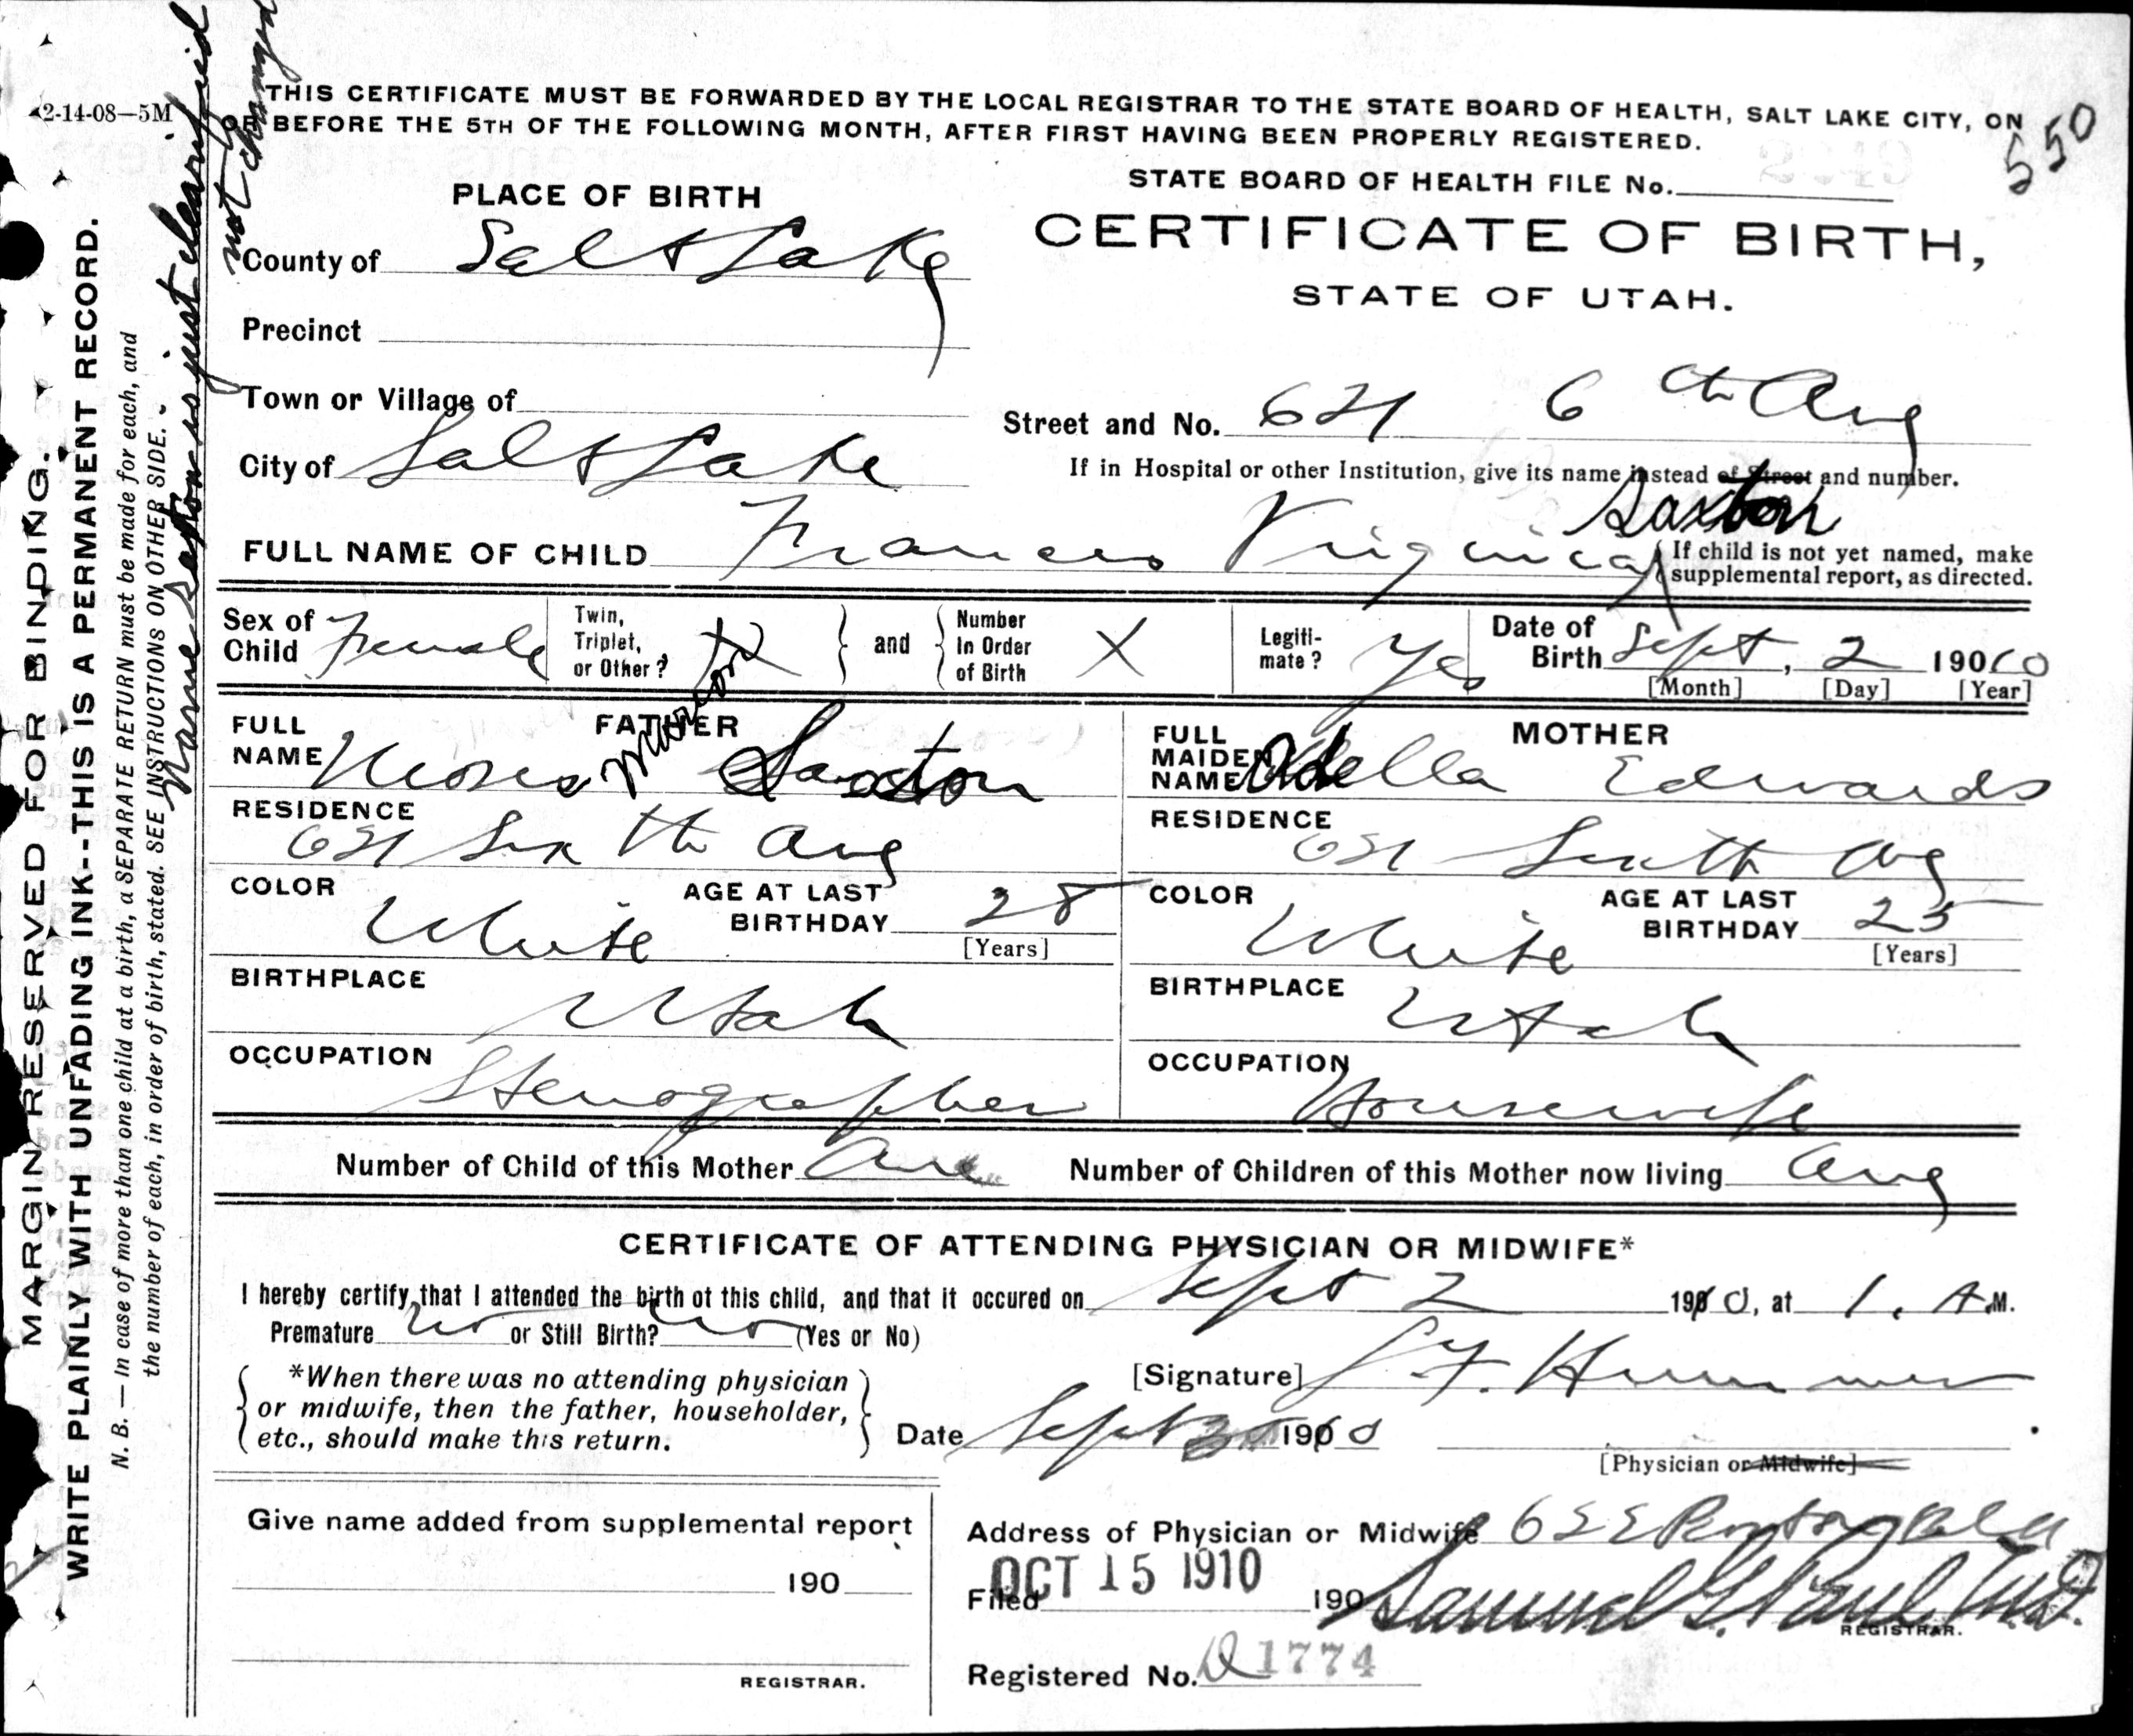 2-14-08—5M
THIS CERTIFICATE MUST BE FORWARDED BY THE LOCAL REGISTRAR TO THE STATE BOARD OF HEALTH, SALT LAKE CITY, ON
OR BEFORE THE 5TH OF THE FOLLOWING MONTH, AFTER FIRST HAVING BEEN PROPERLY REGISTERED.
550
STATE BOARD OF HEALTH FILE No.
PLACE OF BIRTH
CERTIFICATE OF BIRTH,
STATE OF UTAH.
County of Salt Lake
Precinct
Town or Village of
Street and No. 621 6th Ave
City of Salt Lake
If in Hospital or other Institution, give its name instead of Street and number.
Saxton
FULL NAME OF CHILD Frances Virginia
If child is not yet named, make
supplemental report, as directed.
Sex of Child Female
Twin, Triplet, or Other? X
and
Number In Order of Birth X
Legitimate? Yes
Date of Birth Sept, 2 19010
[Month] [Day] [Year]
FATHER
FULL NAME Moses Saxton
RESIDENCE 621 Sixth Ave
COLOR White
AGE AT LAST BIRTHDAY 28
[Years]
BIRTHPLACE Utah
OCCUPATION Stenographer
MOTHER
FULL MAIDEN NAME Adella Edwards
RESIDENCE 621 Sixth Ave
COLOR White
AGE AT LAST BIRTHDAY 25
[Years]
BIRTHPLACE Utah
OCCUPATION Housewife
Number of Child of this Mother
Number of Children of this Mother now living
CERTIFICATE OF ATTENDING PHYSICIAN OR MIDWIFE*
I hereby certify that I attended the birth of this child, and that it occured on Sept 2 1910, at 1. A.M.
Premature no or Still Birth? no (Yes or No)
*When there was no attending physician
or midwife, then the father, householder,
etc., should make this return.
[Signature]
Date Sept 1910
[Physician or Midwife]
Give name added from supplemental report
190
REGISTRAR.
Address of Physician or Midwife
Filed OCT 15 1910 190 Samuel G. Paul M.D.
REGISTRAR.
Registered No. 1774
MARGIN RESERVED FOR BINDING.
WRITE PLAINLY WITH UNFADING INK--THIS IS A PERMANENT RECORD.
N. B. — In case of more than one child at a birth, a SEPARATE RETURN must be made for each, and
the number of each, in order of birth, stated. SEE INSTRUCTIONS ON OTHER SIDE.
Name Saxton is just clearified
not changed